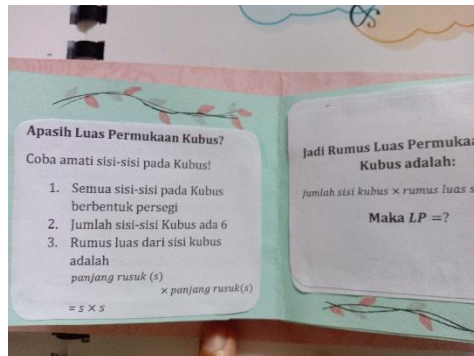 Apasih Luas Permukaan Kubus?
Coba amati sisi-sisi pada Kubus!
1. Semua sisi-sisi pada Kubus
berbentuk persegi
2. Jumlah sisi-sisi Kubus ada 6
3. Rumus luas dari sisi kubus
adalah
panjang rusuk (s)
× panjang rusuk(s)
= s × s
Jadi Rumus Luas
Kubus adalah:
jumlah sisi kubus × rumus luas
Maka LP =?